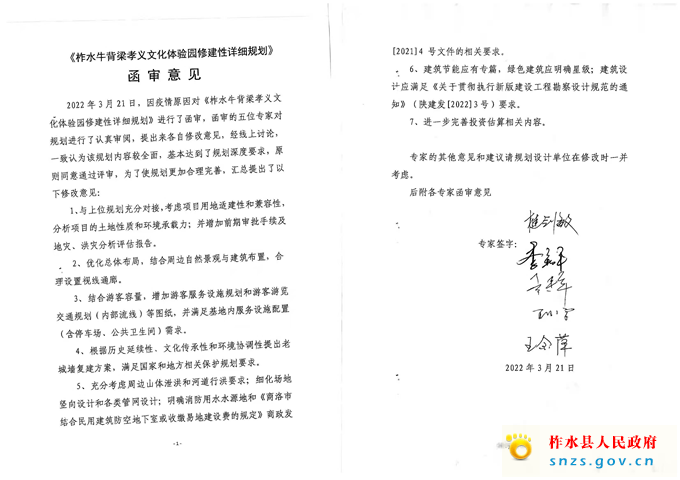 《柞水牛背梁孝义文化体验园修建性详细规划》
函审意见
2022年3月21日，因疫情原因对《柞水牛背梁孝义文
化体验园修建性详细规划》进行了函审，函审的五位专家对
规划进行了认真审阅，提出来各自修改意见，经线上讨论，
一致认为该规划内容较全面，基本达到了规划深度要求，原
则同意通过评审，为了使规划更加合理完善，汇总提出了以
下修改意见：
1、与上位规划充分对接，考虑项目用地适建性和兼容性，
分析项目的土地性质和环境承载力；并增加前期审批手续及
地灾、洪灾分析评估报告。
2、优化总体布局，结合周边自然景观与建筑布置，合
理设置视线通廊。
3、结合游客容量，增加游客服务设施规划和游客游览
交通规划（内部流线）等图纸，并满足基地内服务设施配置
（含停车场、公共卫生间）需求。
4、根据历史延续性、文化传承性和环境协调性提出老
城墙复建方案，满足国家和地方相关保护规划要求。
5、充分考虑周边山体泄洪和河道行洪要求；细化场地
竖向设计和各类管网设计；明确消防用水水源地和《商洛市
结合民用建筑防空地下室或收缴易地建设费的规定》商政发
-1-
[2021]4 号文件的相关要求。
6、建筑节能应有专篇，绿色建筑应明确星级；建筑设
计应满足《关于贯彻执行新版建设工程勘察设计规范的通
知》（陕建发[2022]3号）要求。
7、进一步完善投资估算相关内容。
专家的其他意见和建议请规划设计单位在修改时一并
考虑。
后附各专家函审意见
专家签字：
2022年3月21日
柞水县人民政府
snzs.gov.cn